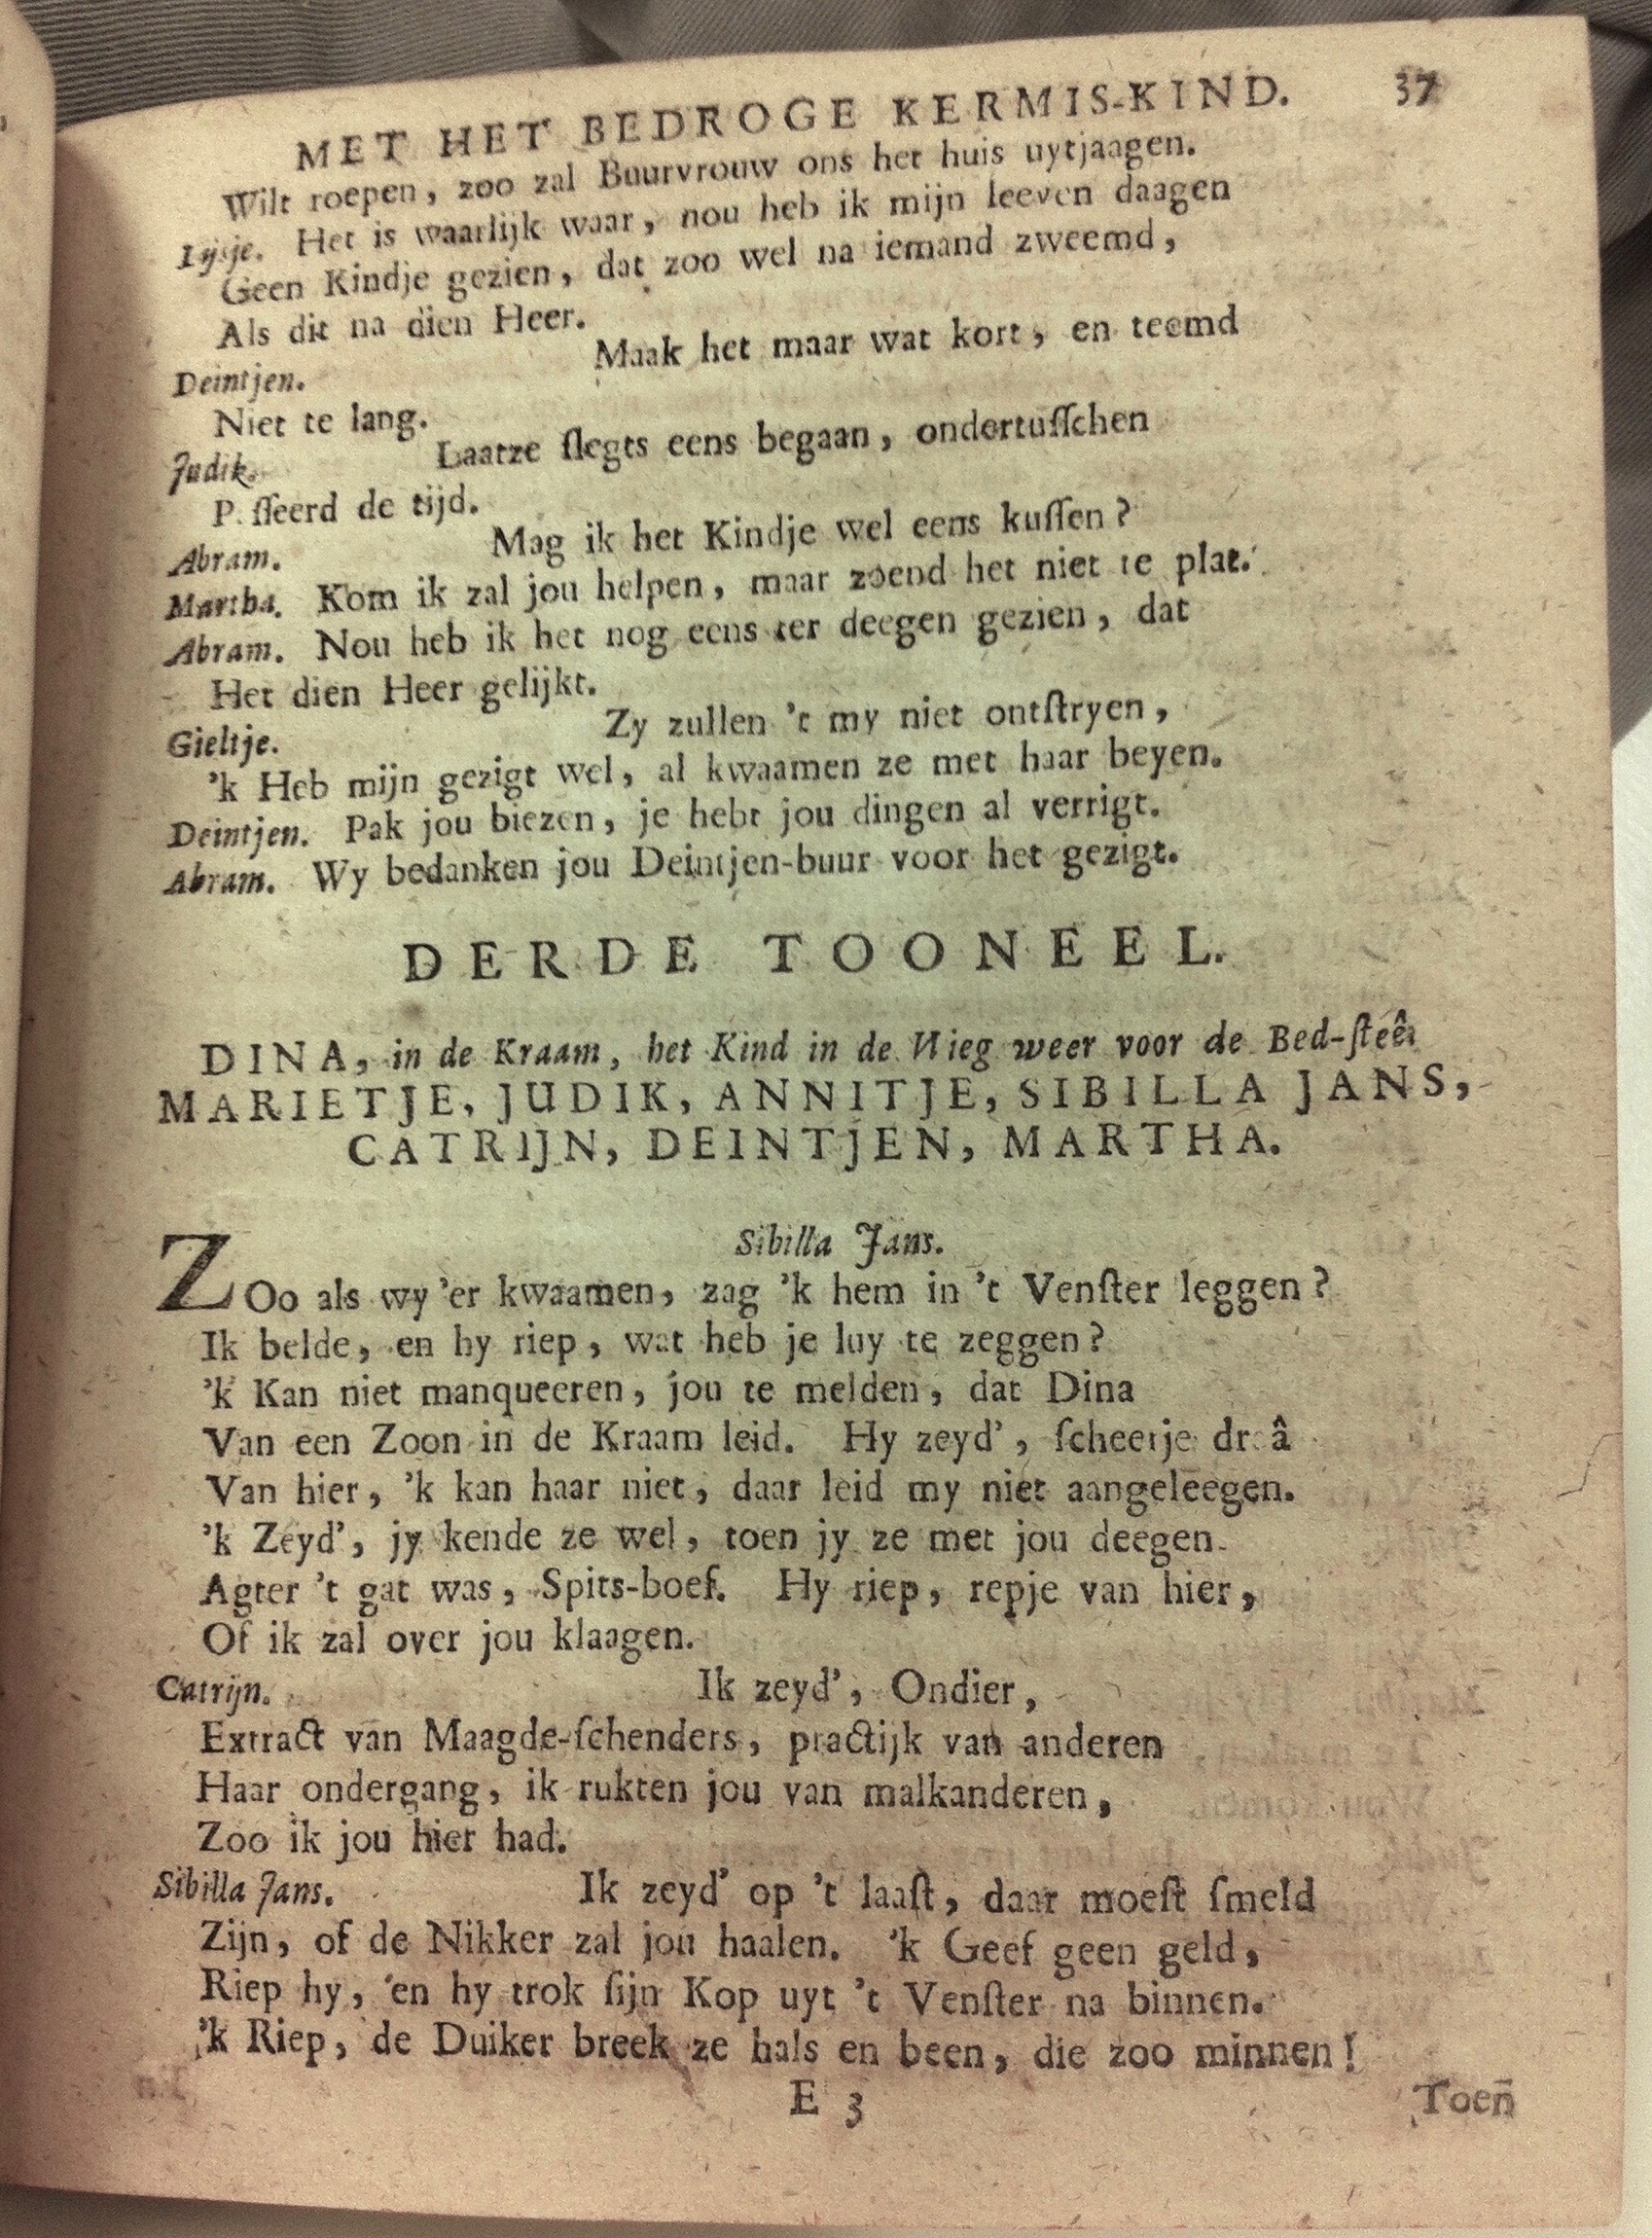 MET HET BEDROGE KERMIS-KIND. 37
Wilt roepen, zoo zal Buurvrouw ons het huis uytjaagen.
Lysje. Het is waarlijk waar, nou heb ik mijn leeven daagen
Geen Kindje gezien, dat zoo wel na iemand zweemd,
Als dit na dien Heer.
Deintjen. Maak het maar wat kort, en teemd
Niet te lang.
Judik. Laatze ſlegts eens begaan, ondertuſſchen
P.ſſeerd de tijd.
Abram. Mag ik het Kindje wel eens kuſſen?
Martha. Kom ik zal jou helpen, maar zoend het niet te plat.
Abram. Nou heb ik het nog eens ter deegen gezien, dat
Het dien Heer gelijkt.
Gieltje. Zy zullen 't my niet ontſtryen,
'k Heb mijn gezigt wel, al kwaamen ze met haar beyen.
Deintjen. Pak jou biezen, je hebt jou dingen al verrigt.
Abram. Wy bedanken jou Deintjen-buur voor het gezigt.
DERDE TOONEEL.
DINA, in de Kraam, het Kind in de Wieg weer voor de Bed-ſteê
MARIETJE, JUDIK, ANNITJE, SIBILLA JANS,
CATRIJN, DEINTJEN, MARTHA.
Sibilla Jans.
ZOo als wy 'er kwaamen, zag 'k hem in 't Venſter leggen?
Ik belde, en hy riep, wat heb je luy te zeggen?
'k Kan niet manqueeren, jou te melden, dat Dina
Van een Zoon in de Kraam leid. Hy zeyd', ſcheerje dr a â
Van hier, 'k kan haar niet, daar leid my niet aangeleegen.
'k Zeyd', jy kende ze wel, toen jy ze met jou deegen
Agter 't gat was, Spits-boef. Hy riep, repje van hier,
Of ik zal over jou klaagen.
Catrijn. Ik zeyd', Ondier,
Extract van Maagde-ſchenders, practijk van anderen
Haar ondergang, ik rukten jou van malkanderen,
Zoo ik jou hier had.
Sibilla Jans. Ik zeyd' op 't laaſt, daar moeſt ſmeld
Zijn, of de Nikker zal jou haalen. 'k Geef geen geld,
Riep hy, en hy trok ſijn Kop uyt 't Venſter na binnen.
'k Riep, de Duiker breek ze hals en been, die zoo minnen!
E 3 Toen̄